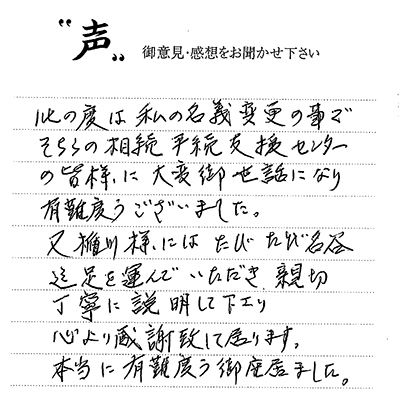 "声"
御意見・感想をお聞かせ下さい
此の度は私の名義変更の事で
そちらの相続手続支援センター
の皆様に大変御世話になり
有難度うございました。
又樋川様にはたびたび名谷
迄足を運んでいただき親切
丁寧に説明して下さり
心より感謝致して居ります。
本当に有難度う御座居ました。